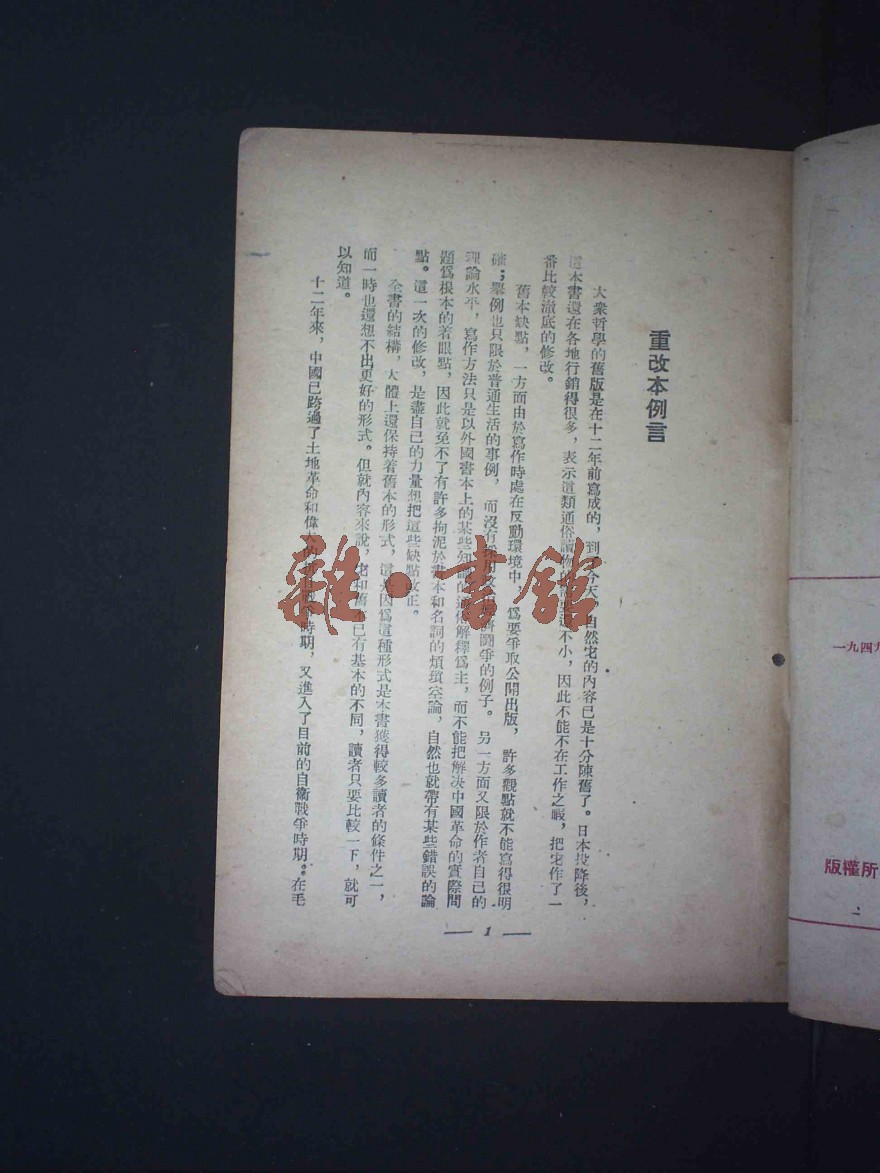 重改本例言
大衆哲學的舊版是在十二年前寫成的，到了今天，自然它的內容已是十分陳舊了。日本投降後，
這本書還在各地行銷得很多，表示這類通俗讀物的需要還不小，因此不能不在工作之暇，把它作了一
番比較澈底的修改。
舊本缺點，一方面由於寫作時處在反動環境中，爲要爭取公開出版，許多觀點就不能寫得很明
確；舉例也只限於普通生活的事例，而沒有鬪爭的例子。另一方面又限於作者自己的
理論水平，寫作方法只是以外國書本上的某些知識的通俗解釋爲主，而不能把解决中國革命的實際問
題爲根本的着眼點，因此就免不了有許多拘泥於書本和名詞的煩瑣空論，自然也就帶有某些錯誤的論
點。這一次的修改，是盡自己的力量想把這些缺點改正。
全書的結構，大體上還保持着舊本的形式，這是因爲這種形式是本書獲得較多讀者的條件之一，
而一時也還想不出更好的形式。但就內容來說，它和舊本已有基本的不同，讀者只要比較一下，就可
以知道。
十二年來，中國已跨過了土地革命和偉大的戰爭時期，又進入了目前的自衞戰爭時期。在毛
1
雜·書館
一九四九
版權所